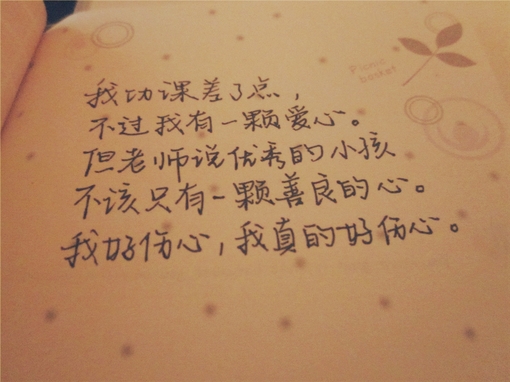 我功课差了点，
不过我有一颗爱心。
但老师说优秀的小孩
不该只有一颗善良的心。
我好伤心，我真的好伤心。
Picnic
basket